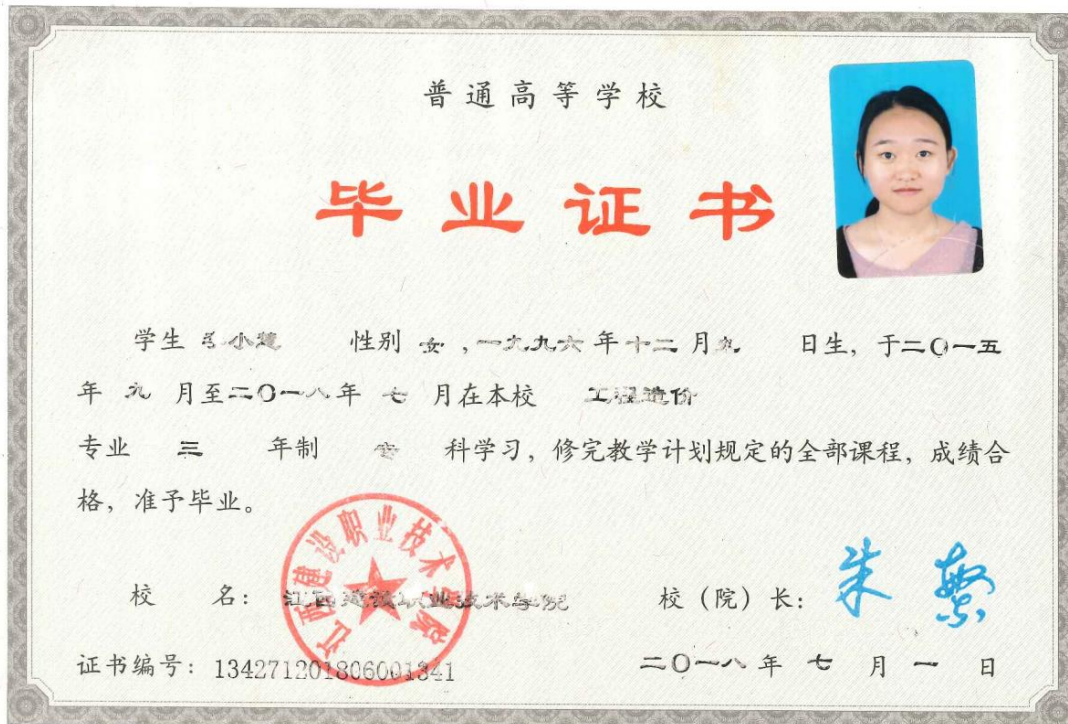 普通高等学校
毕业证书
学生 小慧 性别 女，一九九六年十二月九 日生，于二〇一五
年 九 月至二〇一八年 七 月在本校 工程造价
专业 三 年制 专 科学习，修完教学计划规定的全部课程，成绩合
格，准予毕业。
江西建设职业技术学院
校 名：江西建设职业技术学院 校（院）长：朱 繁
证书编号：134271201806001341 二〇一八年 七 月 一 日